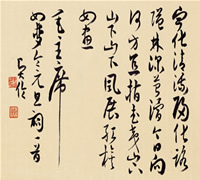 寧化清流歸化路
隘林深苔滑今日向
何方直指武夷山下
山下山下風展紅旗
如畫
毛主席
如夢令元旦詞一首